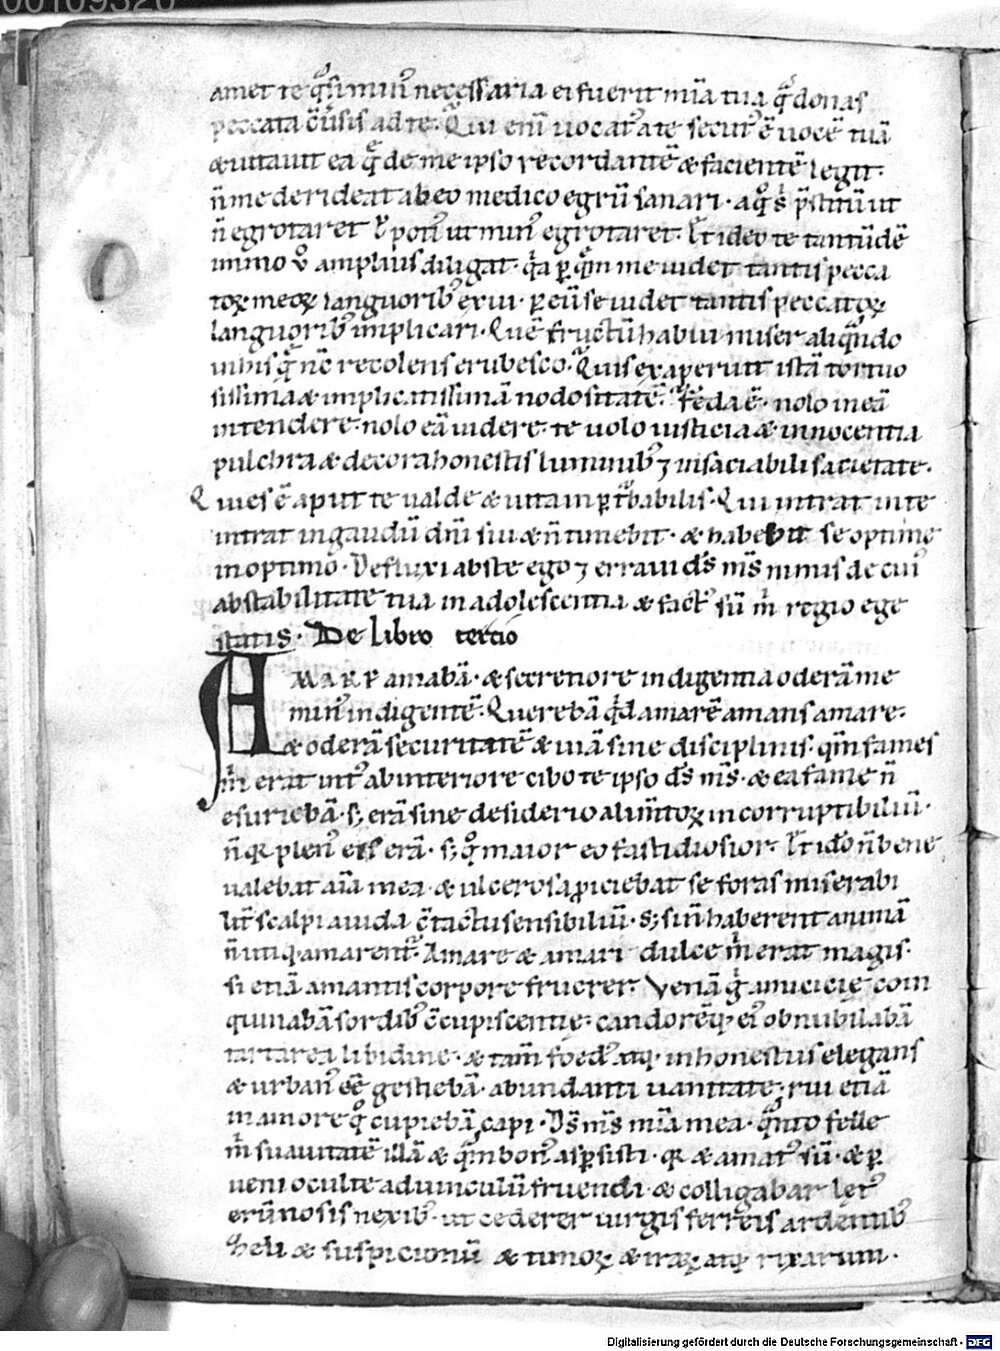 00109320
amet te q̊si minꝰ necessaria ei fuerit mīa tua q̄ donas
peccata c̄u̅sis ad te. Qui eni᷒ uocatꝰ a te secutꝰ ē uocē tuā
& uitauit ea q̄ de me ipso recordantē & facientē legit.
n̄ me derideat ab eo medico egrū sanari. a q̊ s͛ p̄stitū ut
n̄ egrotaret ł potiꝰ ut minꝰ egrotaret. Et ideo te tantūdē
immo v̊ amplius diligat. q̇a ꝑ quē me uidet tantis pecca
toꝝ meoꝝ languoribꝰ exui. ꝑ eū se uidet tantis peccatoꝝ
languoribꝰ implicari. Quē fructū habui miser aliqn̄do
in his q̄ nc̄ recolens erubesco. Quis exaperuit istā tortuo
sissimā & implicatissimā nodositatē. Feda ē. nolo in eā
intendere. nolo eā uidere. te uolo iusticia & innocentia
pulchra & decora honestis luminibꝰ ⁊ insaciabili sacietate.
Quies ē aput te ualde & uita inꝑt̓babilis. Qui intrat in te
intrat in gaudiū dn̄i sui & n̄ timebit. & habebit se optime
in optimo. Defluxi abs te ego ⁊ erraui ds̄ ms̄ nimis deuiꝰ
ab stabilitate tua in adolescentia & factꝰ sū m̄ regio ege
statis. De libro tercio
AMARE amabā. & secretiore indigentia oderā me
minꝰ indigentē. Querebā qd̄ amarē amans amare.
& oderā securitatē & uiā sine disciplinis. qm̄ fames
m̄ erat intꝰ ab interiore cibo te ipso ds̄ ms̄. & ea fame n̄
esuriebā. s; erā sine desiderio alim̄toꝝ incorruptibiliū.
n̄ q̇a plenꝰ eis erā. s; q̊ inanior eo fastidiosior. Et ido̅ n̄ bene
ualebat aīa mea & ulcerosa ꝓiciebat se foras miserabi
lit̓ scalpi auida c̄tactu sensibiliū. s; si n̄ haberent animā
n̄ utiq; amarentꝰ. Amare & amari dulce m̄ erat magis.
si etiā amantis corpore fruerer. Venā g̊ amicicię coin
quinabā sordibꝰ c̄cupiscentię. candorēq; eiꝰ obnubilabā
tartarea libidine. & tam̄ foedꝰ atq; inhonestus elegans
& urbanꝰ ee̅ gestiebā. abundanti uanitate. rui etiā
in amore q̊ cupiebā capi. Ds̄ ms̄ mīa mea. qn̄to felle
m̄ suauitatē illā & qm̄ bonꝰ asꝑsisti. q̇a & amatꝰ sū. & ꝑ
ueni occulte ad uinculū fruendi. & colligabar letꝰ
erūnosis nexibꝰ. ut cederer uirgis ferreis ardentibꝰ
zeli & suspicionū & timoꝝ & iraꝝ atq; rixarum.
Digitalisierung gefördert durch die Deutsche Forschungsgemeinschaft - DFG